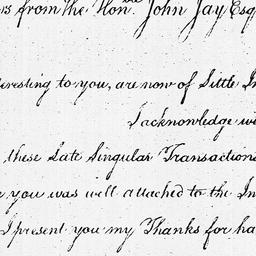 rs from the Honble John Jay Esq
teresting to you, are now of Little In
I acknowledge wi
these Late Singular Transactions
e you was well attached to the In
I present you my Thanks for ha